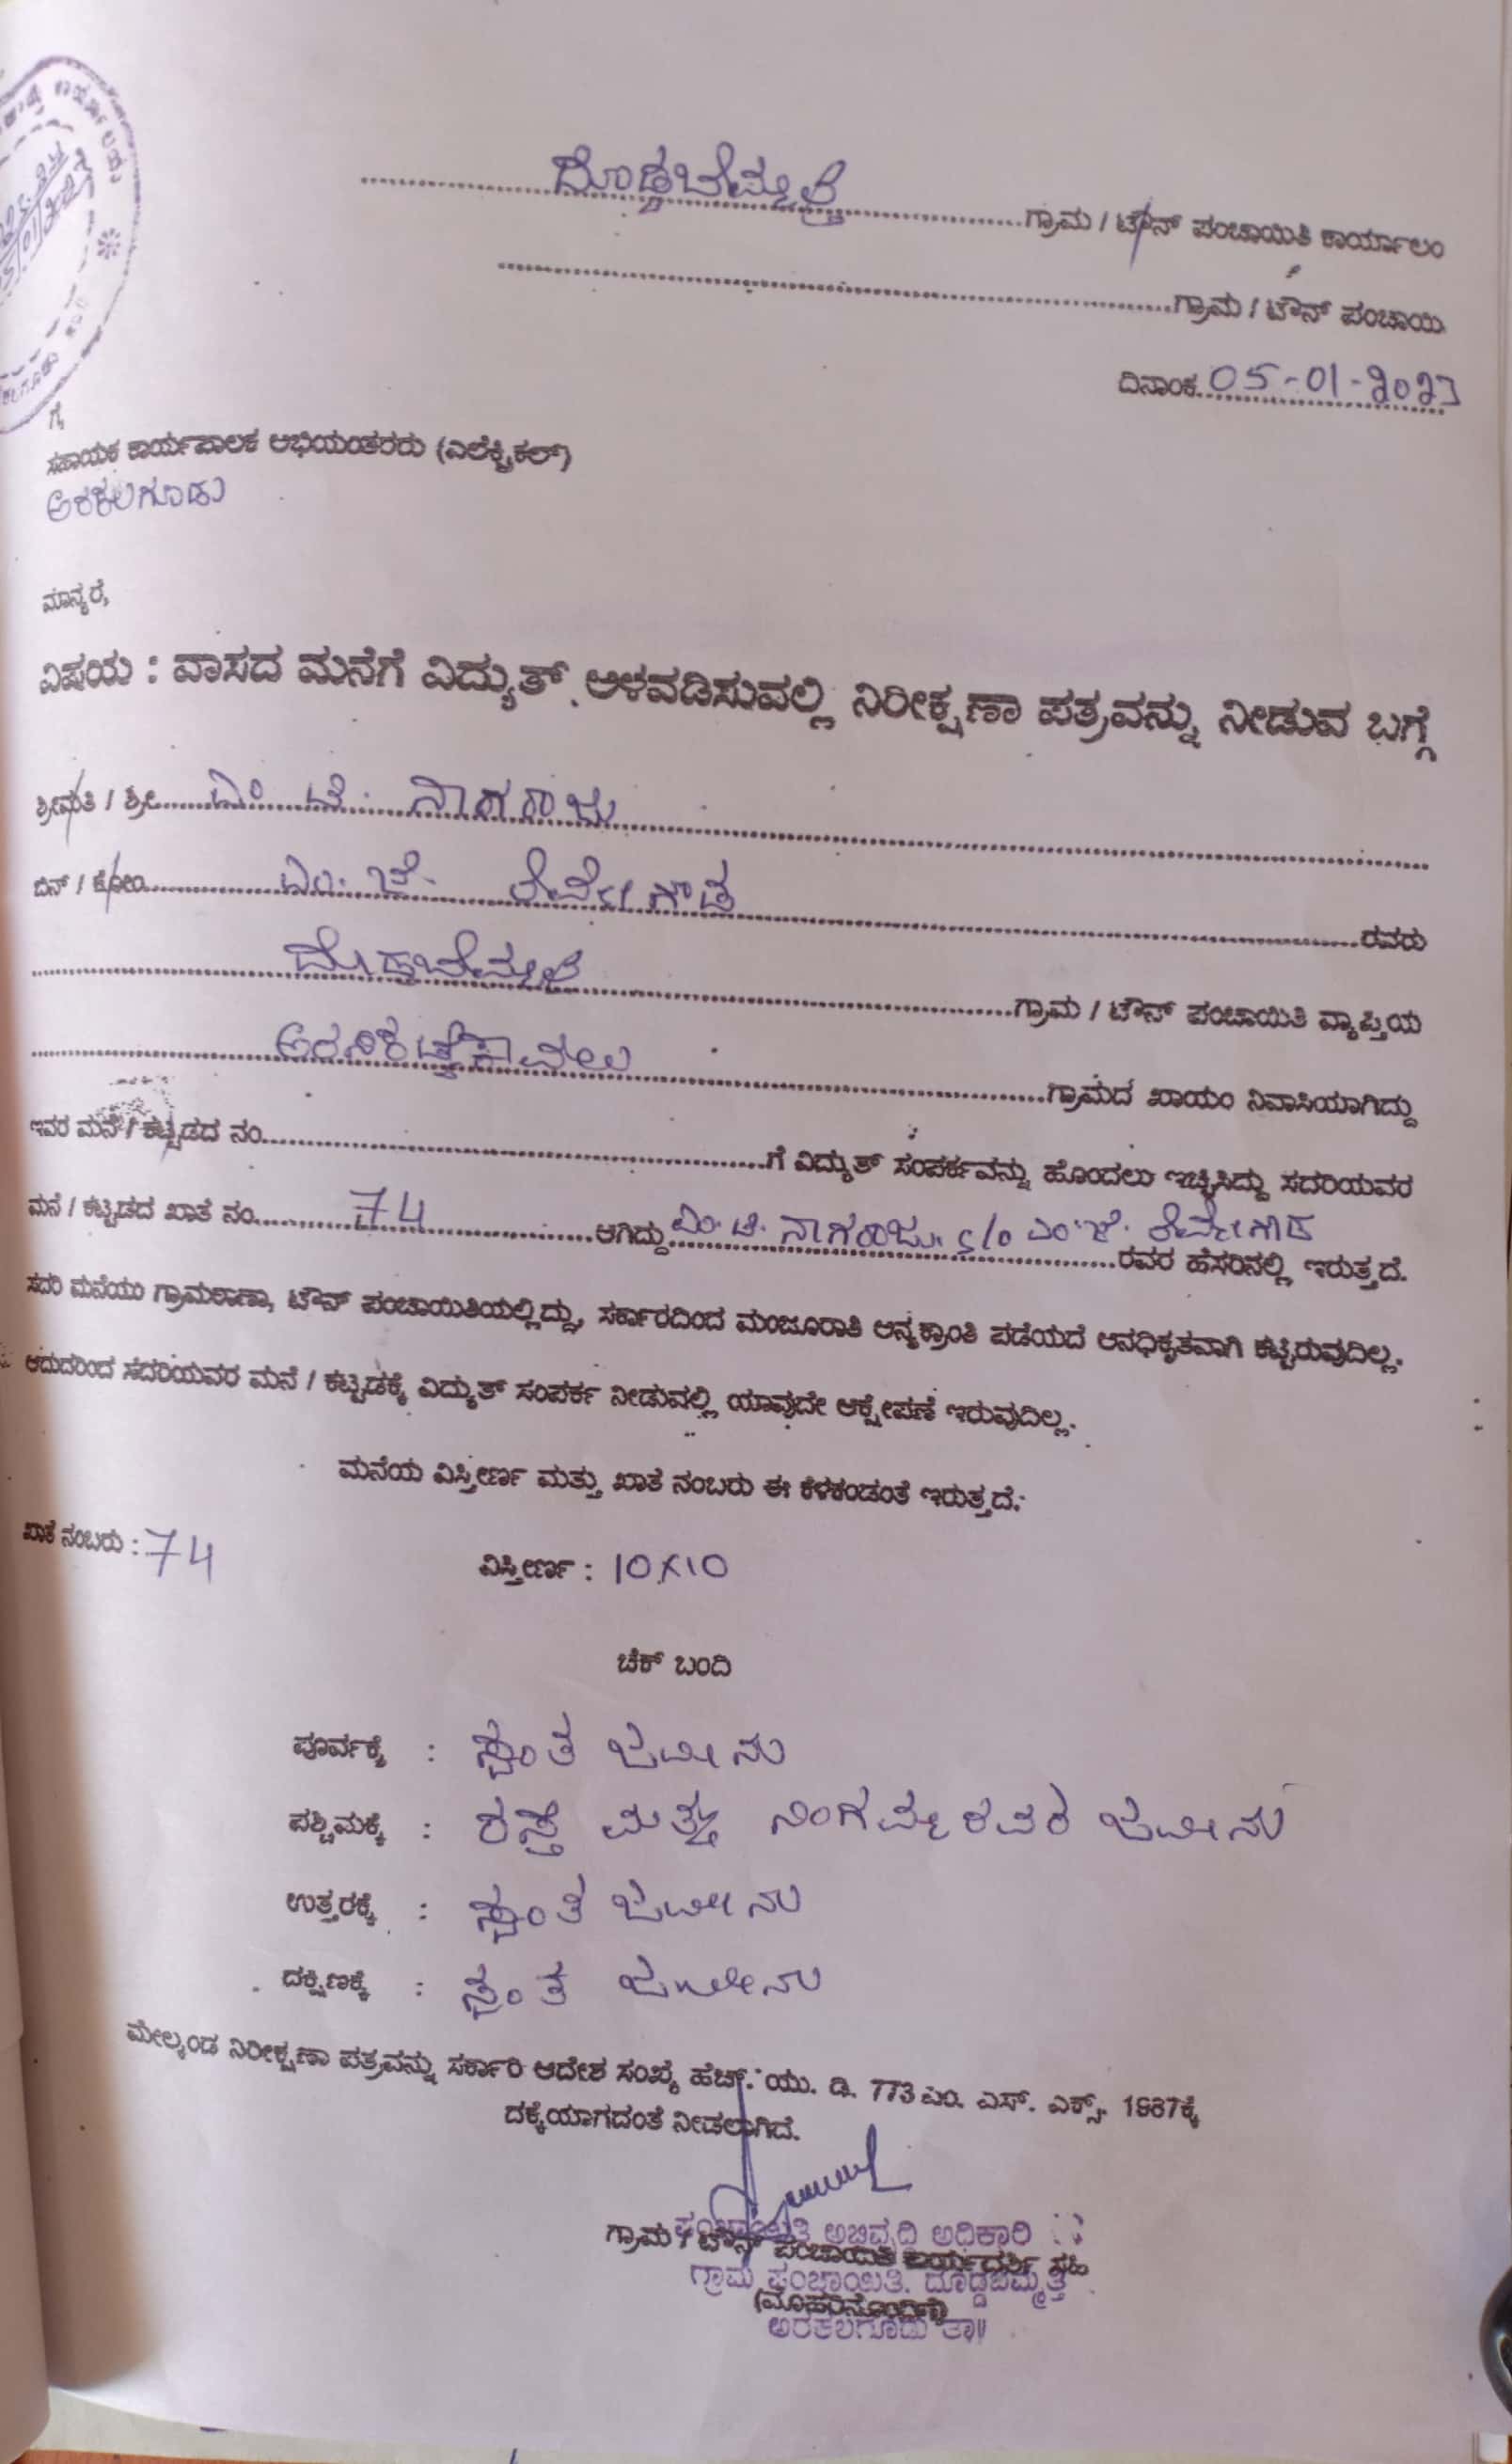 ದೊಡ್ಡಬೆಮ್ಮತ್ತಿ ಗ್ರಾಮ / ಟೌನ್ ಪಂಚಾಯಿತಿ ಕಾರ್ಯಾಲಂ
ಗ್ರಾಮ / ಟೌನ್ ಪಂಚಾಯಿ
ದಿನಾಂಕ 05-01-2023
ಗೆ,
ಸಹಾಯಕ ಕಾರ್ಯಪಾಲಕ ಅಭಿಯಂತರರು (ಎಲೆಕ್ಟ್ರಿಕಲ್)
ಅರಕಲಗೂಡು
ಮಾನ್ಯರೆ,
ವಿಷಯ : ವಾಸದ ಮನೆಗೆ ವಿದ್ಯುತ್ ಅಳವಡಿಸುವಲ್ಲಿ ನಿರೀಕ್ಷಣಾ ಪತ್ರವನ್ನು ನೀಡುವ ಬಗ್ಗೆ
ಶ್ರೀಮತಿ / ಶ್ರೀ ಎಂ ನಾಗರಾಜು
ಬಿನ್ / ಕೋಂ ಎಂ. ಜೆ. ರೇವೇಗೌಡ ರವರು
ದೊಡ್ಡಬೆಮ್ಮತ್ತಿ ಗ್ರಾಮ / ಟೌನ್ ಪಂಚಾಯಿತಿ ವ್ಯಾಪ್ತಿಯ
ಗ್ರಾಮದ ಖಾಯಂ ನಿವಾಸಿಯಾಗಿದ್ದು
ಇವರ ಮನೆ / ಕಟ್ಟಡದ ನಂ ಗೆ ವಿದ್ಯುತ್ ಸಂಪರ್ಕವನ್ನು ಹೊಂದಲು ಇಚ್ಛಿಸಿದ್ದು ಸದರಿಯವರ
ಮನೆ / ಕಟ್ಟಡದ ಖಾತೆ ನಂ 74 ಆಗಿದ್ದು ಎಂ. ನಾಗರಾಜು s/o ಎಂ. ಜೆ. ರೇವೇಗೌಡ ರವರ ಹೆಸರಿನಲ್ಲಿ ಇರುತ್ತದೆ.
ಸದರಿ ಮನೆಯು ಗ್ರಾಮಠಾಣಾ, ಟೌನ್ ಪಂಚಾಯಿತಿಯಲ್ಲಿದ್ದು, ಸರ್ಕಾರದಿಂದ ಮಂಜೂರಾತಿ ಅನ್ಯಕ್ರಾಂತಿ ಪಡೆಯದೆ ಅನಧಿಕೃತವಾಗಿ ಕಟ್ಟಿರುವುದಿಲ್ಲ.
ಆದುದರಿಂದ ಸದರಿಯವರ ಮನೆ / ಕಟ್ಟಡಕ್ಕೆ ವಿದ್ಯುತ್ ಸಂಪರ್ಕ ನೀಡುವಲ್ಲಿ ಯಾವುದೇ ಆಕ್ಷೇಪಣೆ ಇರುವುದಿಲ್ಲ.
ಮನೆಯ ವಿಸ್ತೀರ್ಣ ಮತ್ತು ಖಾತೆ ನಂಬರು ಈ ಕೆಳಕಂಡಂತೆ ಇರುತ್ತದೆ:
ಖಾತೆ ನಂಬರು : 74 ವಿಸ್ತೀರ್ಣ : 10X10
ಚೆಕ್ ಬಂದಿ
ಪೂರ್ವಕ್ಕೆ : ಸ್ವಂತ ಜಮೀನು
ಪಶ್ಚಿಮಕ್ಕೆ : ರಸ್ತೆ ಮತ್ತು ನಿಂಗಮ್ಮರವರ ಜಮೀನು
ಉತ್ತರಕ್ಕೆ : ಸ್ವಂತ ಜಮೀನು
ದಕ್ಷಿಣಕ್ಕೆ : ಸ್ವಂತ ಜಮೀನು
ಮೇಲ್ಕಂಡ ನಿರೀಕ್ಷಣಾ ಪತ್ರವನ್ನು ಸರ್ಕಾರಿ ಆದೇಶ ಸಂಖ್ಯೆ ಹೆಚ್. ಯು. ಡಿ. 773 ಎಂ. ಎಸ್. ಎಕ್ಸ್. 1987ಕ್ಕೆ
ದಕ್ಕೆಯಾಗದಂತೆ ನೀಡಲಾಗಿದೆ.
ಪಂಚಾಯಿತಿ ಅಭಿವೃದ್ಧಿ ಅಧಿಕಾರಿ
ಗ್ರಾಮ / ಟೌನ್ ಪಂಚಾಯಿತಿ ಕಾರ್ಯದರ್ಶಿ ಸಹಿ
ಗ್ರಾಮ ಪಂಚಾಯಿತಿ. ದೊಡ್ಡಬೆಮ್ಮತ್ತಿ
(ಮೊಹರಿನೊಂದಿಗೆ)
ಅರಕಲಗೂಡು ತಾ॥